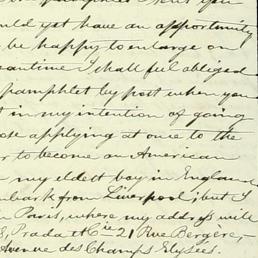 uld yet have an opportunity
be happy to enlarge on
eantime I shall feel obliged
pamphlet by post when you
t in my intention of going
ose applying at once to the
r to become an American
my eldest boy in England
mbark from Liverpool; but I
n Paris, where my address will
S, Prada et Cie 21 Rue Bergère,
Avenue des Champs Elysées.